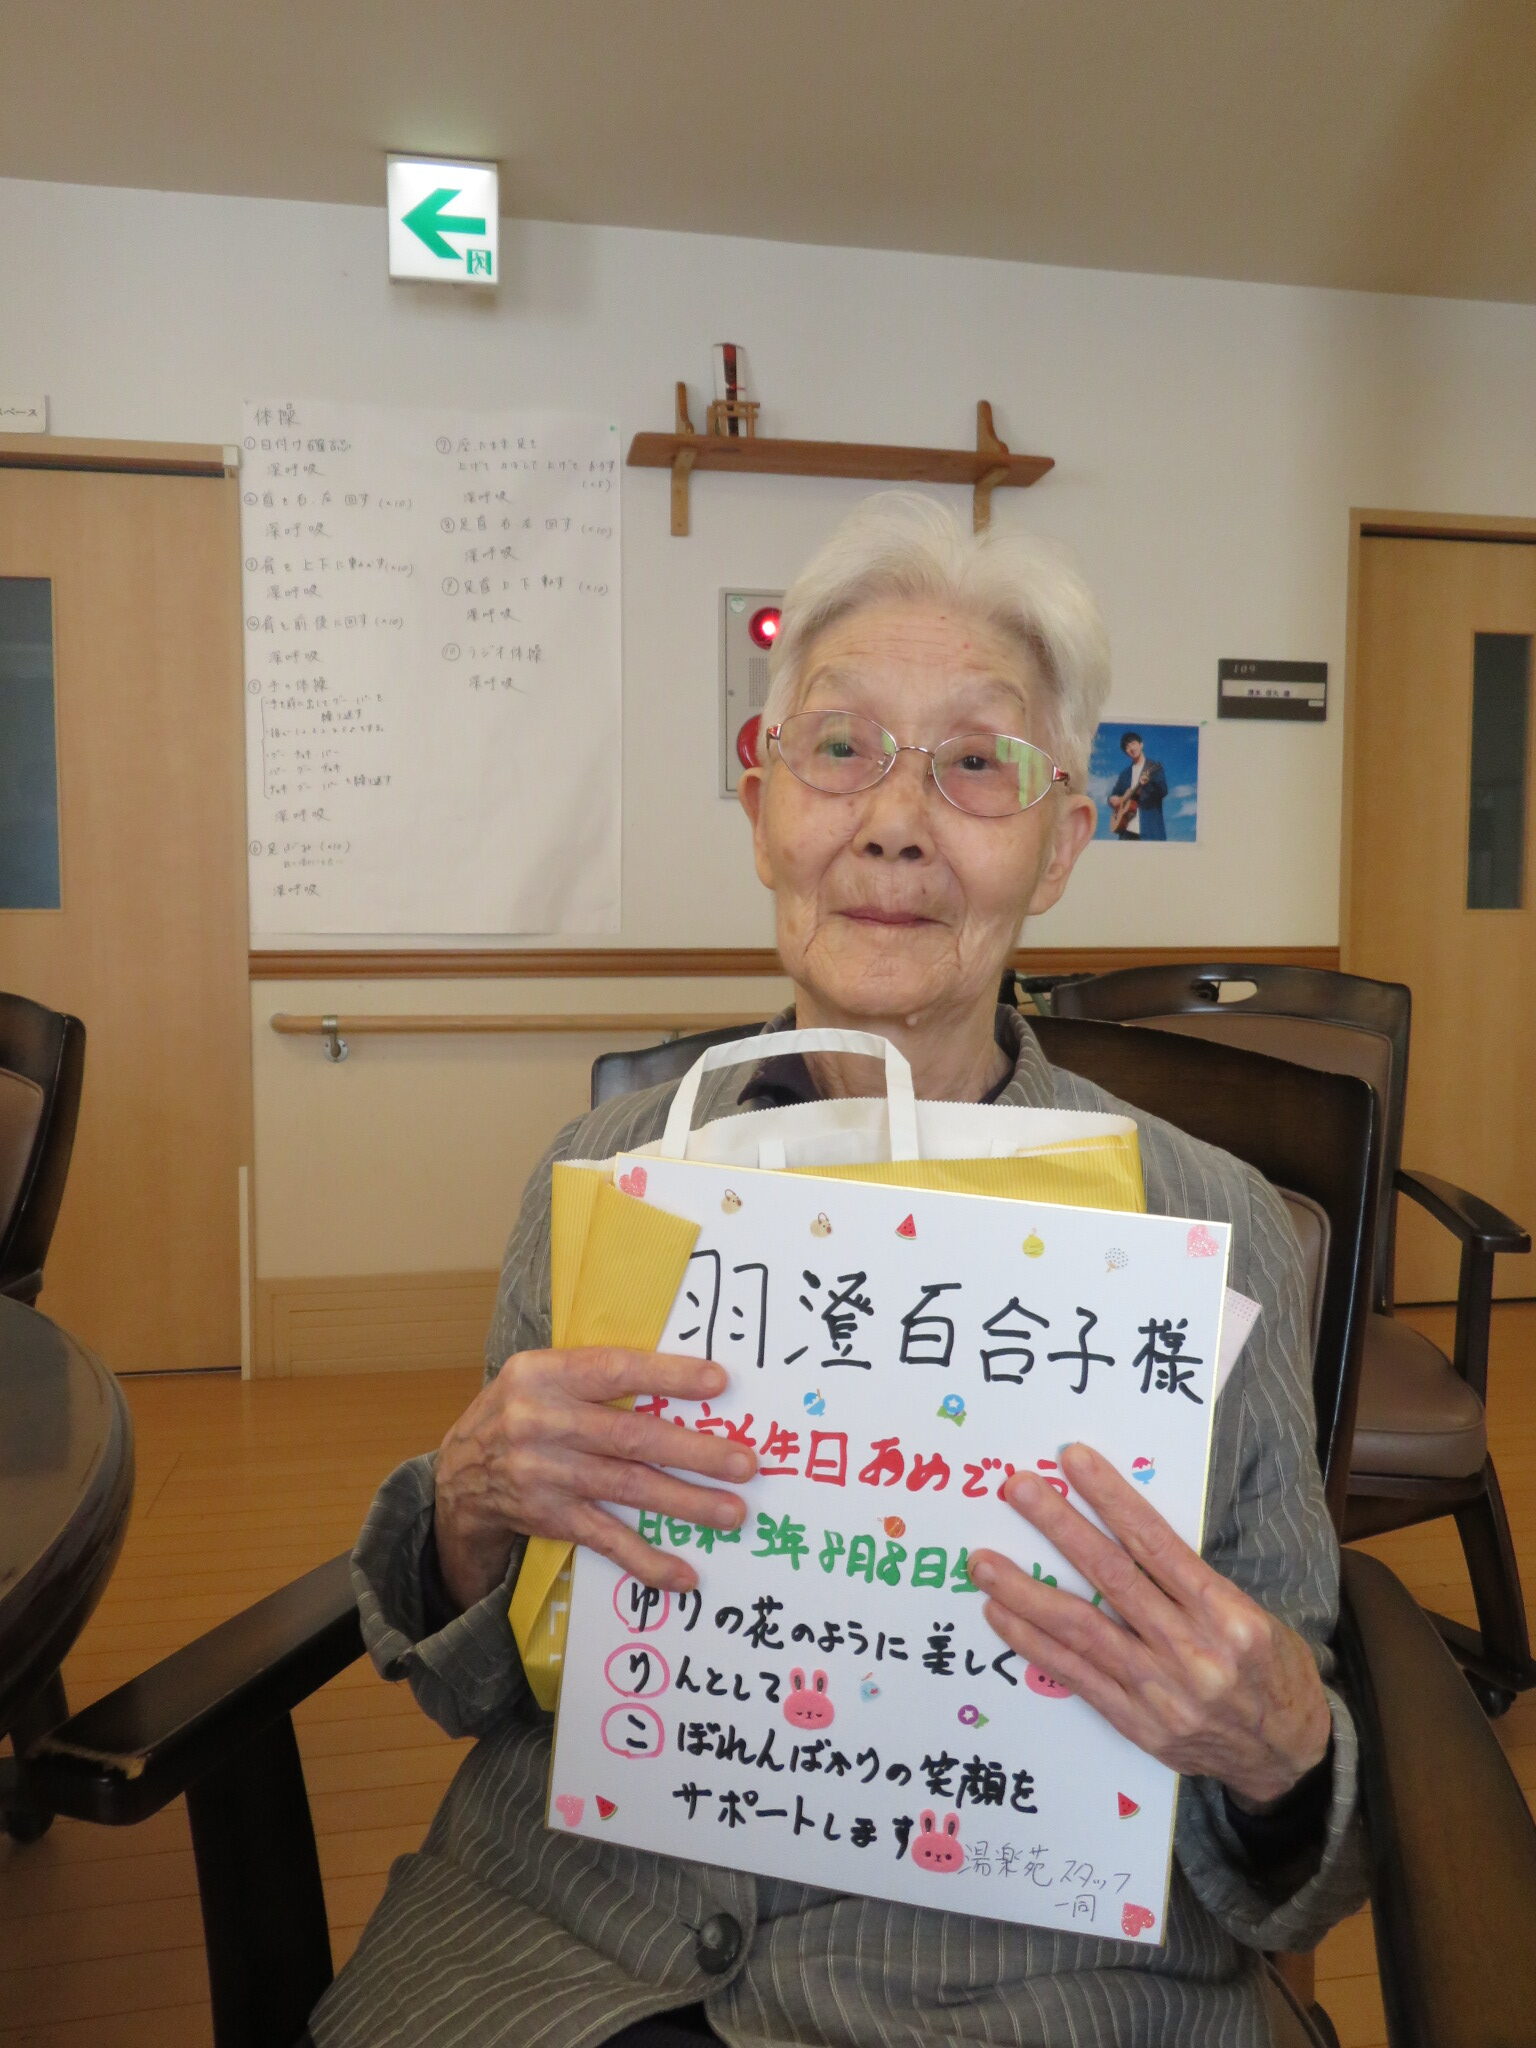 スペース
体操
①日付け確認
深呼吸
②首を右、左 回す(×10)
深呼吸
③肩を上下に動かす(×10)
深呼吸
④肩を前後に回す(×10)
深呼吸
⑤手の体操
グー チョキ パー
パー グー チョキ
チョキ グー パー を繰り返す
深呼吸
⑥足ぶみ(×10)
深呼吸
深呼吸
⑧足首 右、左 回す (×10)
深呼吸
⑨足首 上下 動かす (×10)
深呼吸
⑩ラジオ体操
深呼吸
109
羽澄百合子様
お誕生日あめでとう
昭和3年8月8日生
ゆりの花のように美しく
りんとして
こぼれんばかりの笑顔を
サポートします
湯楽苑 スタッフ
一同